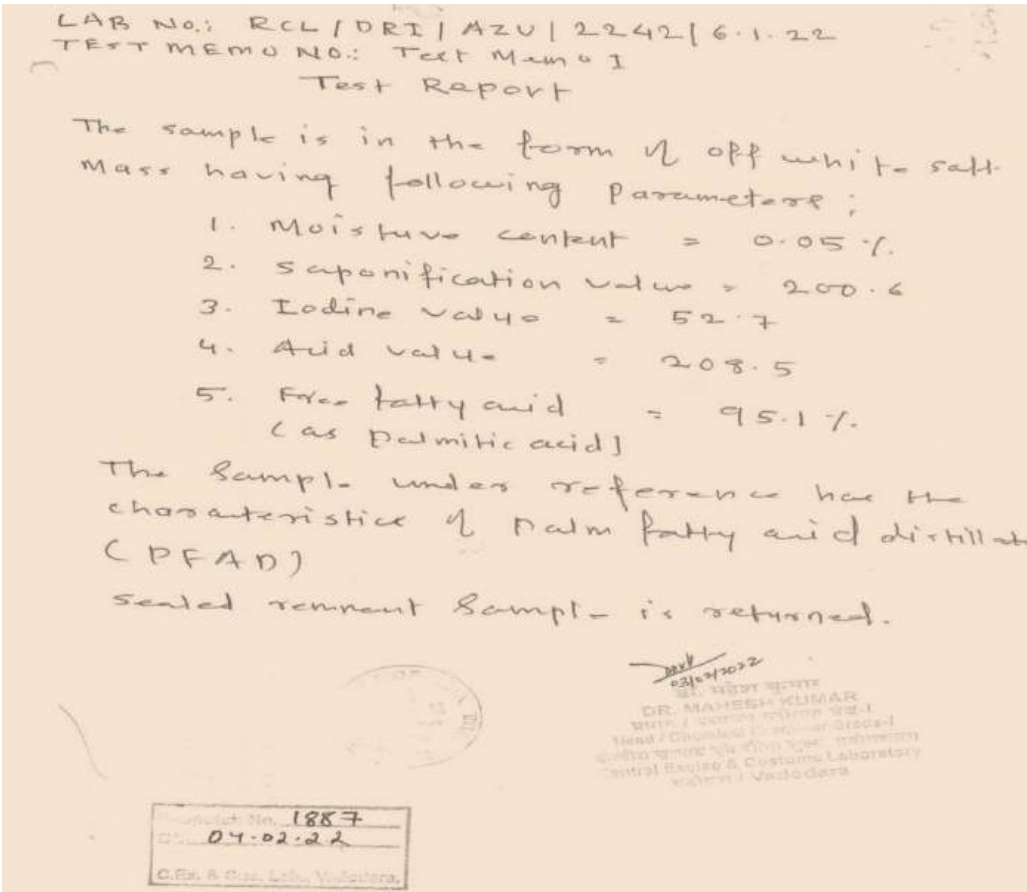 LAB No.: RCL / DRI / AZU / 2242 / 6.1.22
TEST MEMO NO.: Test Memo I
Test Report
The sample is in the form of off white soft
Mass having following parameters :
1. Moisture content = 0.05 %.
2. saponification value = 200.6
3. Iodine value = 52.7
4. Acid value = 208.5
5. Free fatty acid = 95.1 %.
(as palmitic acid)
The Sample under reference has the
characteristics of palm fatty acid distillat
(PFAD)
sealed remnant Sample is returned.
03/02/2022
डॉ. महेश कुमार
DR. MAHESH KUMAR
Head / Chemical Examiner Grade-I
Central Excise & Customs Laboratory
वडोदरा / Vadodara
Despatch No. 1887
04.02.22
C.Ex. & Cus. Lab., Vadodara.